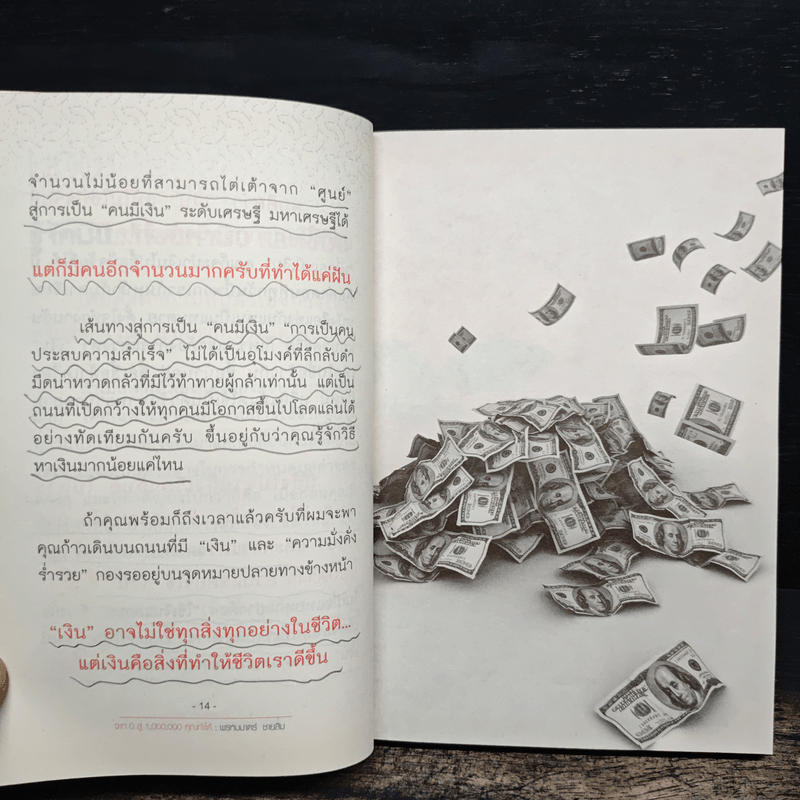 จำนวนไม่น้อยที่สามารถไต่เต้าจาก "ศูนย์"
สู่การเป็น "คนมีเงิน" ระดับเศรษฐี มหาเศรษฐีได้
แต่ก็มีคนอีกจำนวนมากครับที่ทำได้แค่ฝัน
เส้นทางสู่การเป็น "คนมีเงิน" "การเป็นคน
ประสบความสำเร็จ" ไม่ได้เป็นอุโมงค์ที่ลึกลับดำ
มืดน่าหวาดกลัวที่มีไว้ท้าทายผู้กล้าเท่านั้น แต่เป็น
ถนนที่เปิดกว้างให้ทุกคนมีโอกาสขึ้นไปโลดแล่นได้
อย่างทัดเทียมกันครับ ขึ้นอยู่กับว่าคุณรู้จักวิธี
หาเงินมากน้อยแค่ไหน
ถ้าคุณพร้อมก็ถึงเวลาแล้วครับที่ผมจะพา
คุณก้าวเดินบนถนนที่มี "เงิน" และ "ความมั่งคั่ง
ร่ำรวย" กองรออยู่บนจุดหมายปลายทางข้างหน้า
"เงิน" อาจไม่ใช่ทุกสิ่งทุกอย่างในชีวิต...
แต่เงินคือสิ่งที่ทำให้ชีวิตเราดีขึ้น
- 14 -
จาก 0 สู่ 1,000,000 คุณทำได้ :